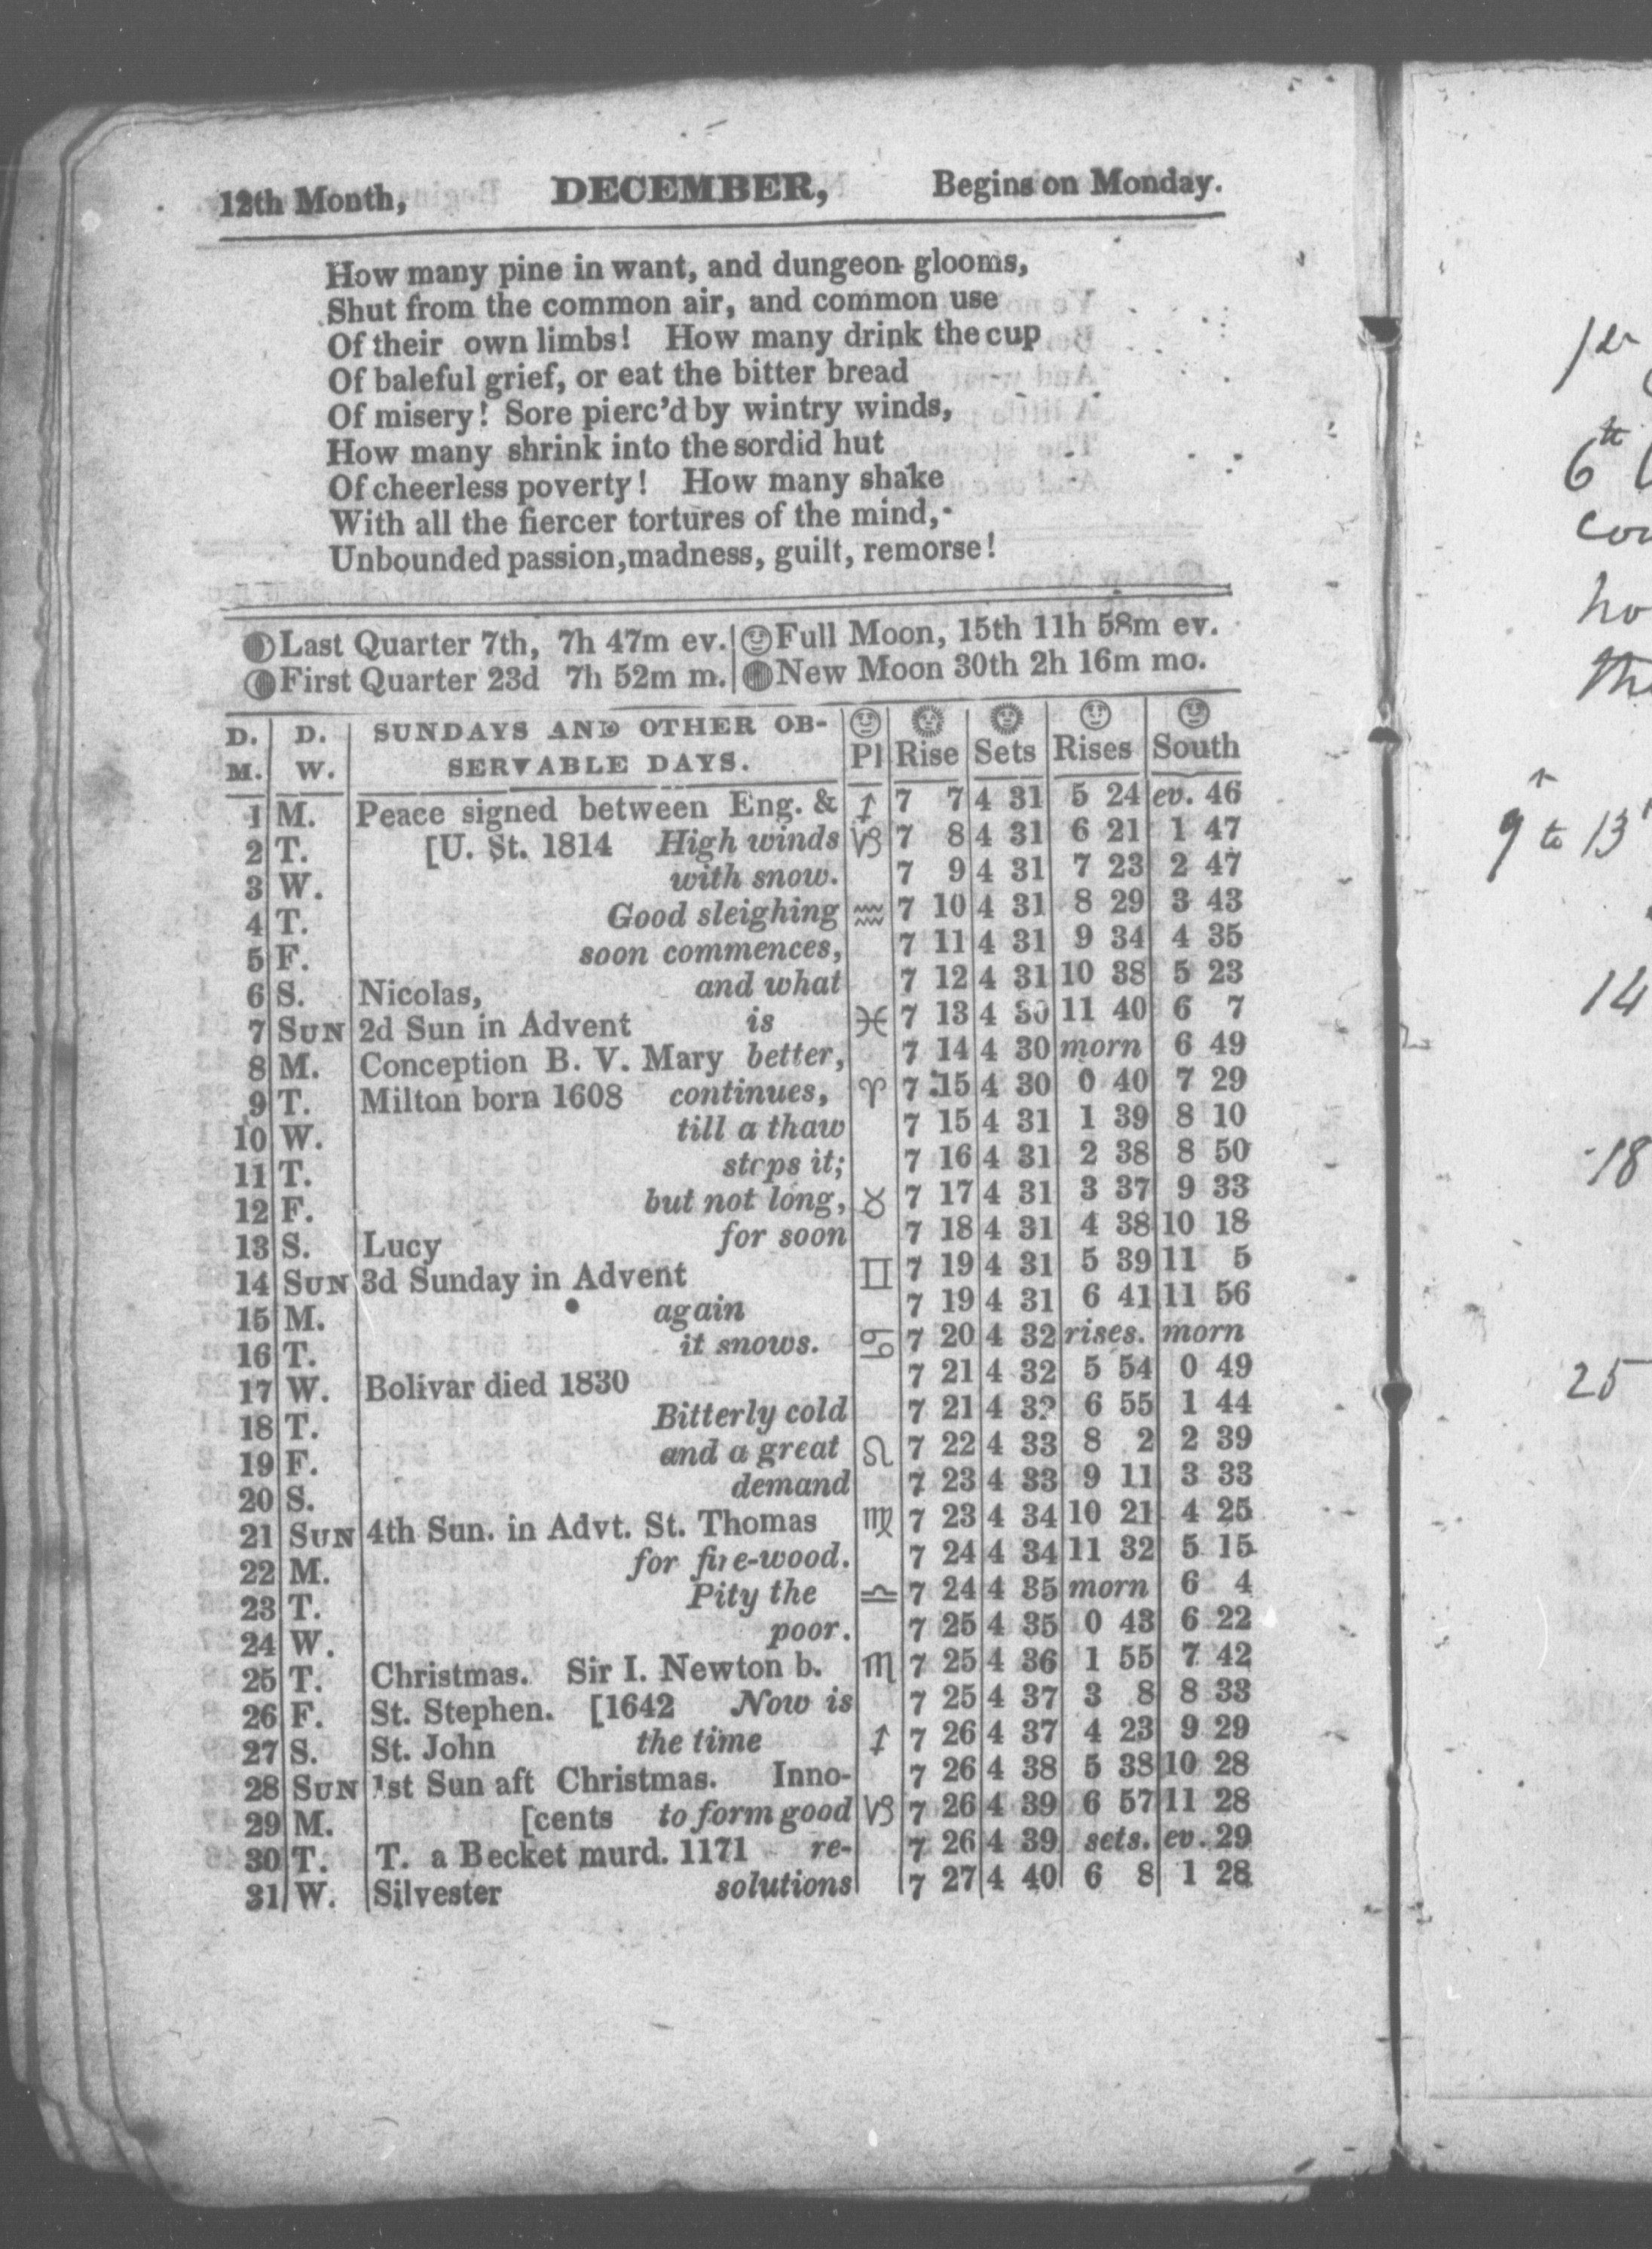 12th Month, DECEMBER, Begins on Monday.
How many pine in want, and dungeon glooms,
Shut from the common air, and common use
Of their own limbs! How many drink the cup
Of baleful grief, or eat the bitter bread
Of misery! Sore pierc'd by wintry winds,
How many shrink into the sordid hut
Of cheerless poverty! How many shake
With all the fiercer tortures of the mind,
Unbounded passion, madness, guilt, remorse!
Last Quarter 7th, 7h 47m ev. Full Moon, 15th 11h 58m ev.
First Quarter 23d 7h 52m m. New Moon 30th 2h 16m mo.
D. D. SUNDAYS AND OTHER OB-
M. W. SERVABLE DAYS. Pl Rise Sets Rises South
1 M. Peace signed between Eng. & ♐ 7 7 4 31 5 24 ev. 46
2 T. [U. St. 1814 High winds ♑ 7 8 4 31 6 21 1 47
3 W. with snow. 7 9 4 31 7 23 2 47
4 T. Good sleighing ♒ 7 10 4 31 8 29 3 43
5 F. soon commences, 7 11 4 31 9 34 4 35
6 S. Nicolas, and what 7 12 4 31 10 38 5 23
7 SUN 2d Sun in Advent is ♓ 7 13 4 30 11 40 6 7
8 M. Conception B. V. Mary better, 7 14 4 30 morn 6 49
9 T. Milton born 1608 continues, ♈ 7 15 4 30 0 40 7 29
10 W. till a thaw 7 15 4 31 1 39 8 10
11 T. stops it; 7 16 4 31 2 38 8 50
12 F. but not long, ♉ 7 17 4 31 3 37 9 33
13 S. Lucy for soon 7 18 4 31 4 38 10 18
14 SUN 3d Sunday in Advent ♊ 7 19 4 31 5 39 11 5
15 M. again 7 19 4 31 6 41 11 56
16 T. it snows. ♋ 7 20 4 32 rises. morn
17 W. Bolivar died 1830 7 21 4 32 5 54 0 49
18 T. Bitterly cold 7 21 4 32 6 55 1 44
19 F. and a great ♌ 7 22 4 33 8 2 2 39
20 S. demand 7 23 4 33 9 11 3 33
21 SUN 4th Sun. in Advt. St. Thomas ♍ 7 23 4 34 10 21 4 25
22 M. for fire-wood. 7 24 4 34 11 32 5 15
23 T. Pity the ♎ 7 24 4 35 morn 6 4
24 W. poor. 7 25 4 35 0 43 6 22
25 T. Christmas. Sir I. Newton b. ♏ 7 25 4 36 1 55 7 42
26 F. St. Stephen. [1642 Now is 7 25 4 37 3 8 8 33
27 S. St. John the time ♐ 7 26 4 37 4 23 9 29
28 SUN 1st Sun aft Christmas. Inno- 7 26 4 38 5 38 10 28
29 M. [cents to form good ♑ 7 26 4 39 6 57 11 28
30 T. T. a Becket murd. 1171 re- 7 26 4 39 sets. ev. 29
31 W. Silvester solutions 7 27 4 40 6 8 1 28
6th
9 to 13
14
18
25